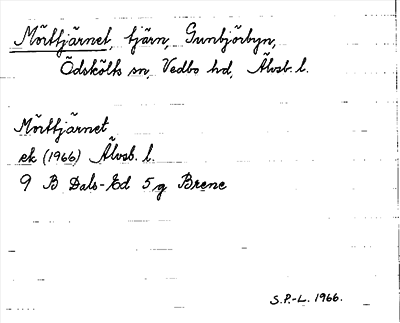 Mörttjärnet, tjärn, Gunbjörbyn,
Ödskölts sn, Vedbo hd, Älvsb. l.
Mörttjärnet
ek (1966) Älvsb. l.
9 B Dals-Ed 5 g Brene
S.P.-L. 1966.